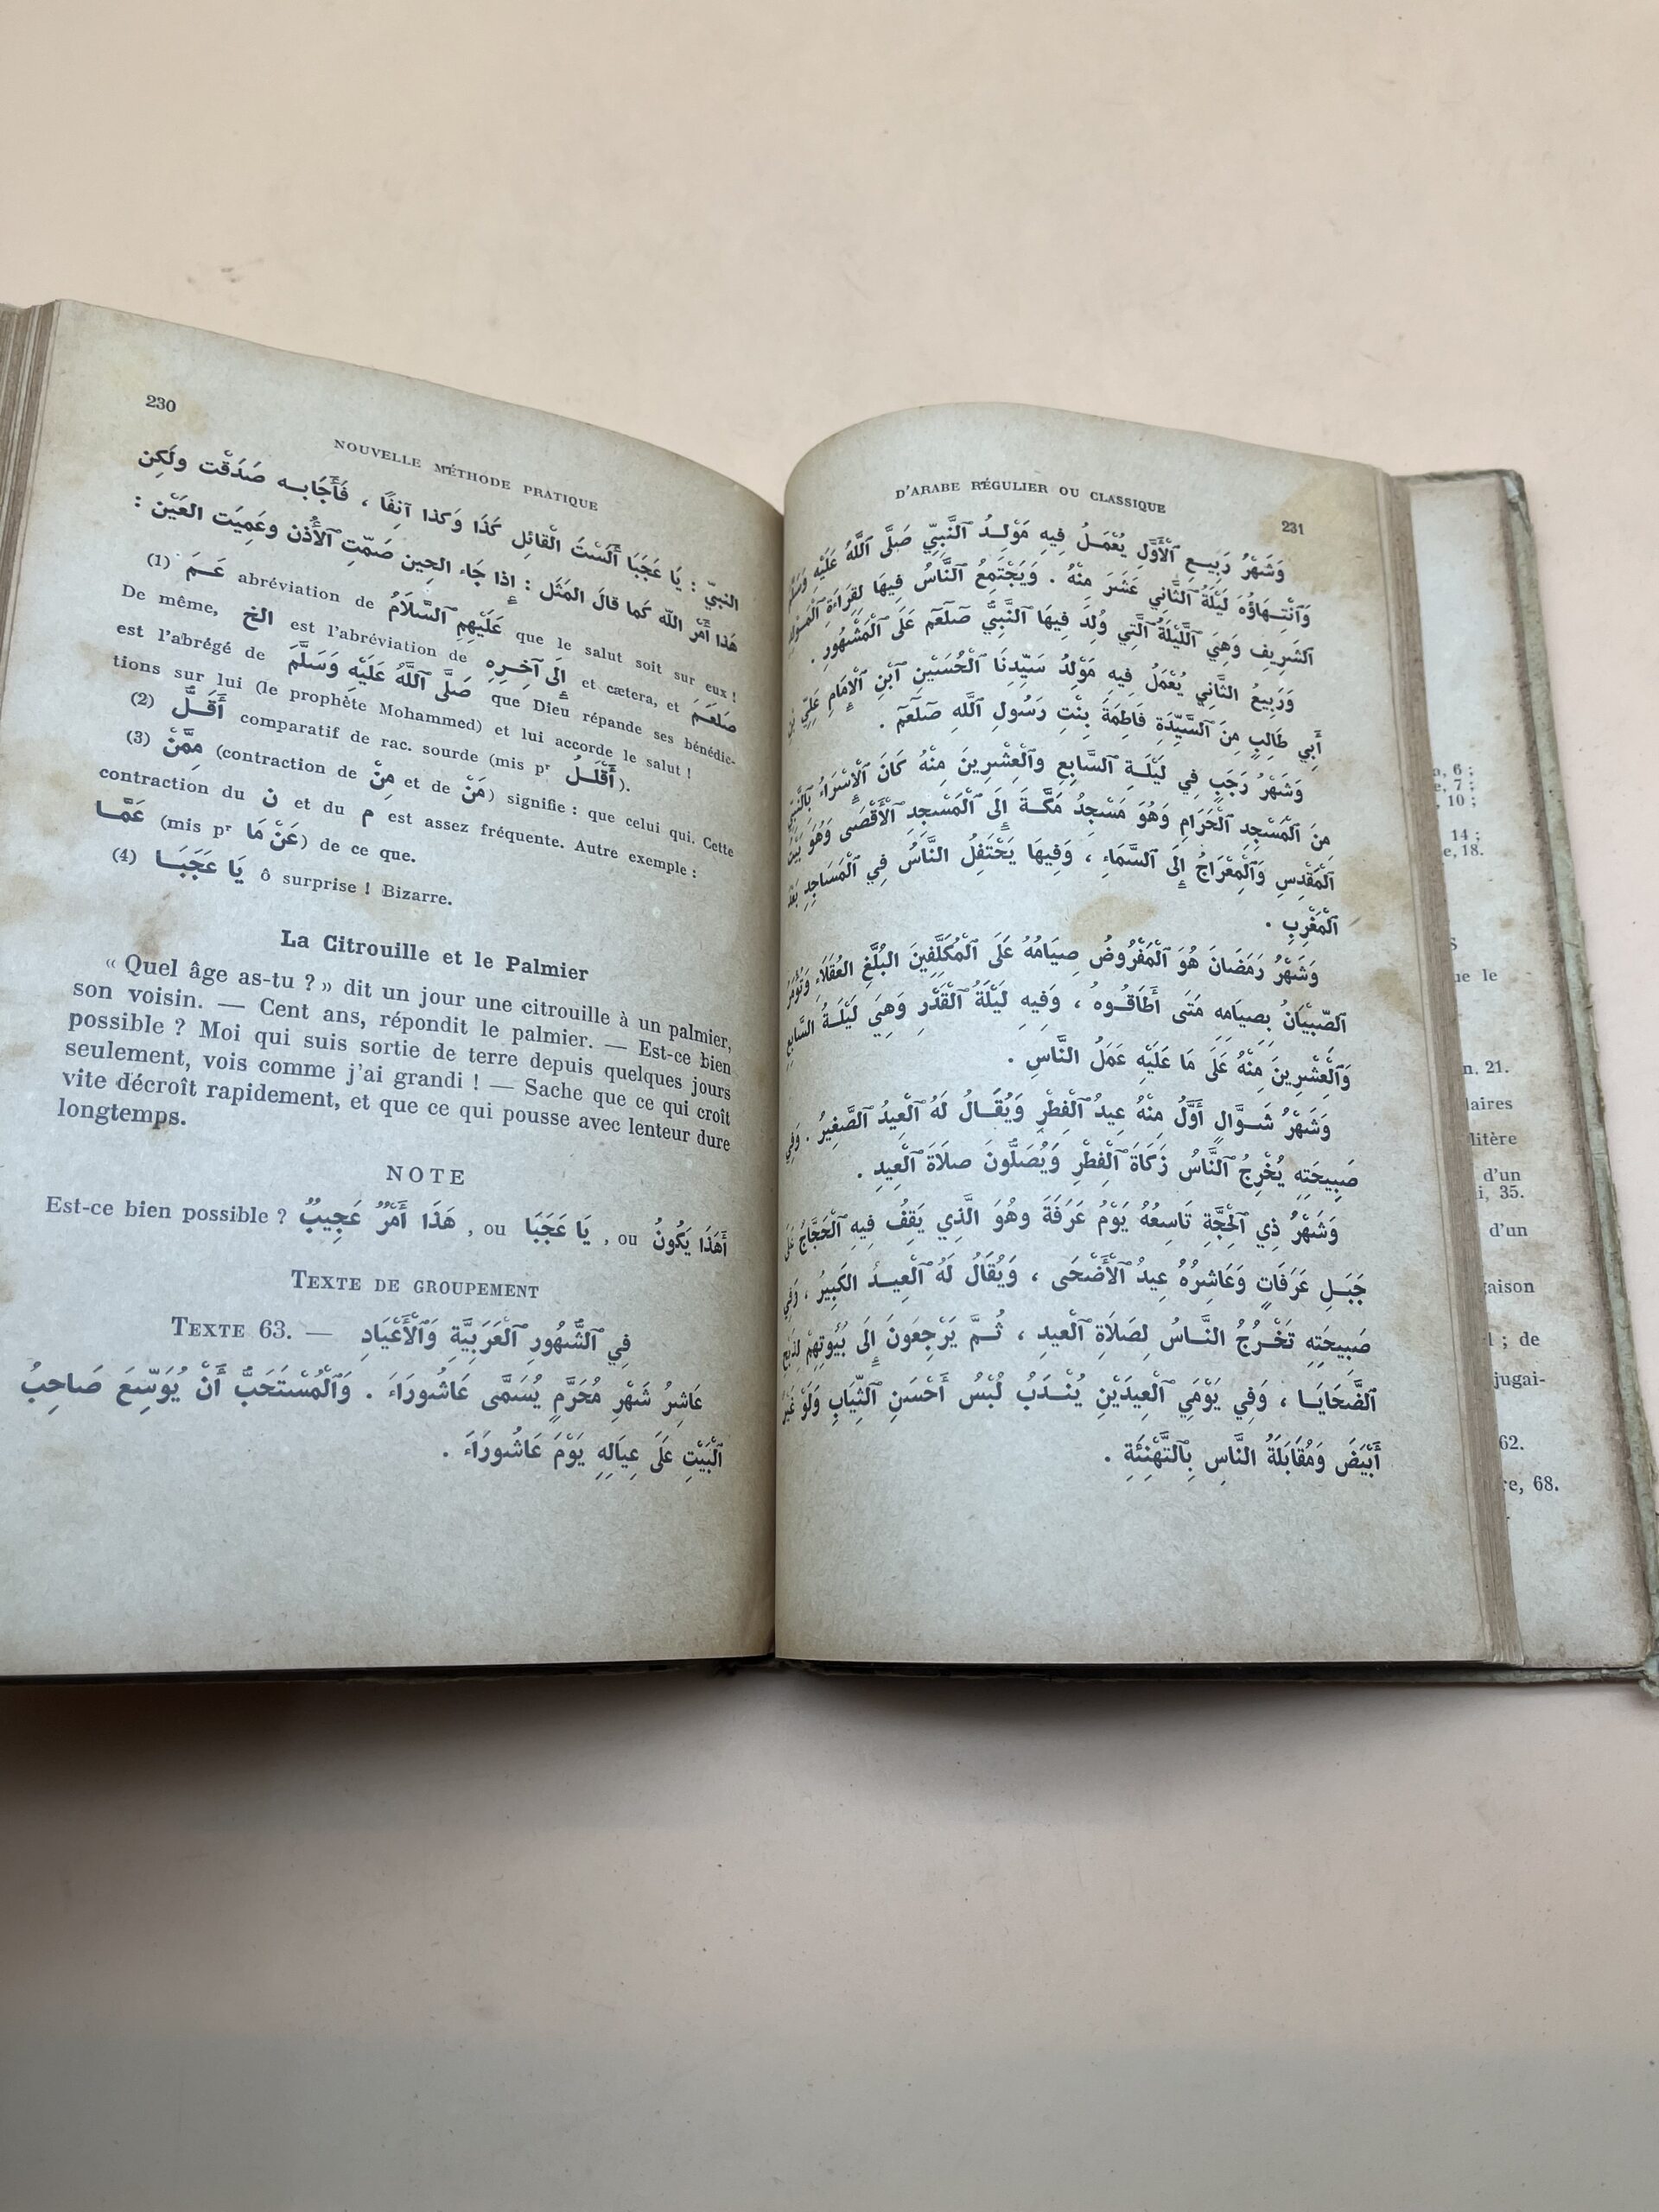 230
NOUVELLE MÉTHODE PRATIQUE
النبيّ : يَا عَجَبَا أَلَسْتَ الْقائِل كَذَا وَكذا آنِفًا ، فَأَجَابـه صَدَقْت ولَكِن
هَذا أَمْر اللّه كَما قالَ المَثَل : إِذا جَاء الحِين صَمّتِ ٱلأُذن وعَمِيَت العَيْن :
(1) عَــمَ abréviation de عَلَيْهِمِ ٱلسَّلَامُ que le salut soit sur eux !
De même, الخ est l'abréviation de إِلَى آخِـرِهِ et cætera, et صَلعَمَ
est l'abrégé de صَلَّى ٱللَّهُ عَلَيْهِ وَسَلَّمَ que Dieu répande ses bénédic-
tions sur lui (le prophète Mohammed) et lui accorde le salut !
(2) أَقَــلُّ comparatif de rac. sourde (mis pʳ أَقْلَــلُ).
(3) مِمَّنْ (contraction de مِنْ et de مَنْ) signifie : que celui qui. Cette
contraction du ن et du م est assez fréquente. Autre exemple :
عَمَّــا (mis pʳ عَنْ مَا) de ce que.
(4) يَا عَجَبَــا ô surprise ! Bizarre.
La Citrouille et le Palmier
« Quel âge as-tu ? » dit un jour une citrouille à un palmier,
son voisin. — Cent ans, répondit le palmier. — Est-ce bien
possible ? Moi qui suis sortie de terre depuis quelques jours
seulement, vois comme j'ai grandi ! — Sache que ce qui croît
vite décroît rapidement, et que ce qui pousse avec lenteur dure
longtemps.
NOTE
Est-ce bien possible ? هَذَا أَمْرٌ عَجِيبٌ , ou يَا عَجَبَا , ou أَهَذَا يَكُونُ
TEXTE DE GROUPEMENT
TEXTE 63. — فِي ٱلشُّهُورِ ٱلْعَرَبِيَّةِ وَٱلْأَعْيَادِ
عَاشِرُ شَهْرِ مُحَرَّمٍ يُسَمَّى عَاشُورَاءَ . وَٱلْمُسْتَحَبُّ أَنْ يُوَسِّعَ صَاحِبُ
ٱلْبَيْتِ عَلَى عِيَالِهِ يَوْمَ عَاشُورَاءَ .
D'ARABE RÉGULIER OU CLASSIQUE
231
وَشَهْرُ رَبِيــعِ ٱلْأَوَّلِ يُعْمَــلُ فِيهِ مَوْلِــدُ ٱلنَّبِيِّ صَلَّى ٱللَّهُ عَلَيْهِ وَسَلَّمَ
وَٱنْتِــهَاؤُهُ لَيْلَةُ ٱلثَّانِي عَشَرَ مِنْهُ . وَيَجْتَمِعُ ٱلنَّاسُ فِيهَا لِقِرَاءَةِ ٱلْمَوْلِدِ
ٱلشَرِيفِ وَهِيَ ٱللَّيْلَةُ ٱلَّتِي وُلِدَ فِيهَا ٱلنَّبِيُّ صَلعَم عَلَى ٱلْمَشْهُورِ .
وَرَبِيعُ الثَّانِي يُعْمَلُ فِيهِ مَوْلِدُ سَيِّدِنَا ٱلْحُسَيْنِ ٱبْنِ ٱلْإِمَامِ عَلِيِّ بْنِ
أَبِي طَالِبٍ مِنَ ٱلسَّيِّدَةِ فَاطِمَةَ بِنْتِ رَسُولِ ٱللَّهِ صَلعَم .
وَشَهْرُ رَجَبٍ فِي لَيْلَــةِ ٱلسَّابِعِ وَٱلْعِشْرِينَ مِنْهُ كَانَ ٱلْإِسْرَاءُ بِٱلنَّبِيِّ
مِنَ ٱلْمَسْجِدِ ٱلْحَرَامِ وَهُوَ مَسْجِدُ مَكَّــةَ إِلَى ٱلْمَسْجِدِ ٱلْأَقْصَى وَهُوَ بَيْتُ
ٱلْمَقْدِسِ وَٱلْمِعْرَاجُ إِلَى ٱلسَّمَاءِ ، وَفِيهَا يَحْتَفِلُ النَّاسُ فِي ٱلْمَسَاجِدِ بَعْدَ
ٱلْمَغْرِبِ .
وَشَهْرُ رَمَضَانَ هُوَ ٱلْمَفْرُوضُ صِيَامُهُ عَلَى ٱلْمُكَلَّفِينَ البُلَّغِ العُقَلَاءِ وَتُؤْمَرُ
ٱلصِّبْيَانُ بِصِيَامِهِ مَتَى أَطَاقُــوهُ ، وَفِيهِ لَيْلَةُ ٱلْقَدْرِ وَهِيَ لَيْلَــةُ السَّابِعِ
وَٱلْعِشْرِينَ مِنْهُ عَلَى مَا عَلَيْهِ عَمَلُ النَّاسِ .
وَشَهْرُ شَــوَّالٍ أَوَّلُ مِنْهُ عِيدُ ٱلْفِطْرِ وَيُقَــالُ لَهُ ٱلْعِيدُ ٱلصَّغِيرُ . وَفِي
صَبِيحَتِهِ يُخْرِجُ ٱلنَّاسُ زَكَاةَ ٱلْفِطْرِ وَيُصَلُّونَ صلَاةَ ٱلْعِيدِ .
وَشَهْرُ ذِي ٱلْحِجَّةِ تَاسِعُهُ يَوْمُ عَرَفَةَ وهُوَ الَّذِي يَقِفُ فِيهِ ٱلْحَجَّاجُ عَلَى
جَبَــلِ عَرَفَاتٍ وَعَاشِرُهُ عِيدُ ٱلْأَضْحَى ، وَيُقَالُ لَهُ ٱلْعِيــدُ الكَبِيرُ ، وَفِي
صَبِيحَتِهِ تَخْــرُجُ النَّــاسُ لِصَلَاةِ ٱلْعيدِ ، ثُــمَّ يَرْجِعُونَ إِلَى بُيُوتِهِمْ لِذَبْحِ
ٱلضَّحَايَــا ، وَفِي يَوْمَيِ ٱلْعِيدَيْنِ يُنْــدَبُ لُبْسُ أَحْسَنِ ٱلثِّيَابِ وَلَوْ غَيْرَ
أَبْيَضَ وَمُقَابَلَةُ النَّاسِ بِٱلتَّهْنِئَةِ .
6 ;
7 ;
10 ;
14 ;
18.
21.
d'un
35.
d'un
de
62.
68.